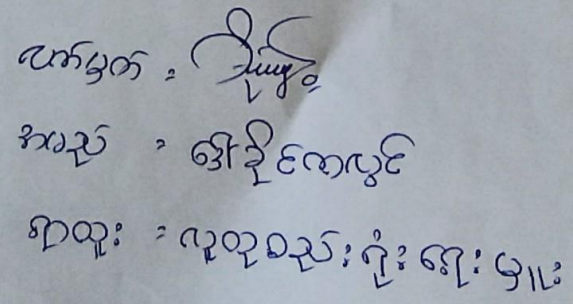 လက်မှတ် :
အမည် : ဒေါ်ခိုင်ကလွင်
ရာထူး : လူထုစည်းရုံးရေးမှူး